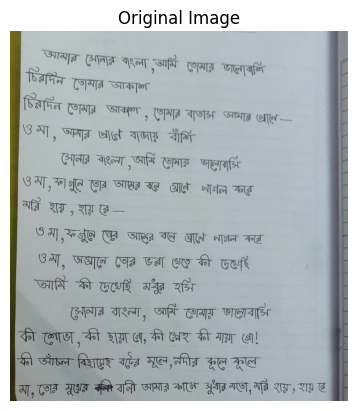 Original Image
আমার সোনার বাংলা, আমি তোমায় ভালোবাসি
চিরদিন তোমার আকাশ
চিরদিন তোমার আকাশ, তোমার বাতাস আমার প্রাণে—
ও মা, আমার প্রাণে বাজায় বাঁশি
সোনার বাংলা, আমি তোমায় ভালোবাসি
ও মা, ফাগুনে তোর আমের বনে ঘ্রাণে পাগল করে
মরি হায়, হায় রে —
ও মা, ফাগুনে তোর আমের বনে ঘ্রাণে পাগল করে
ও মা, অঘ্রানে তোর ভরা খেতে কী দেখেছি
আমি কী দেখেছি মধুর হাসি
সোনার বাংলা, আমি তোমায় ভালোবাসি
কী শোভা, কী ছায়া গো, কী স্নেহ কী মায়া গো!
কী আঁচল বিছায়েছ বটের মূলে, নদীর কূলে কূলে
মা, তোর মুখের বানী আমার কানে সুধার মতো, মরি হায়, হায় রে